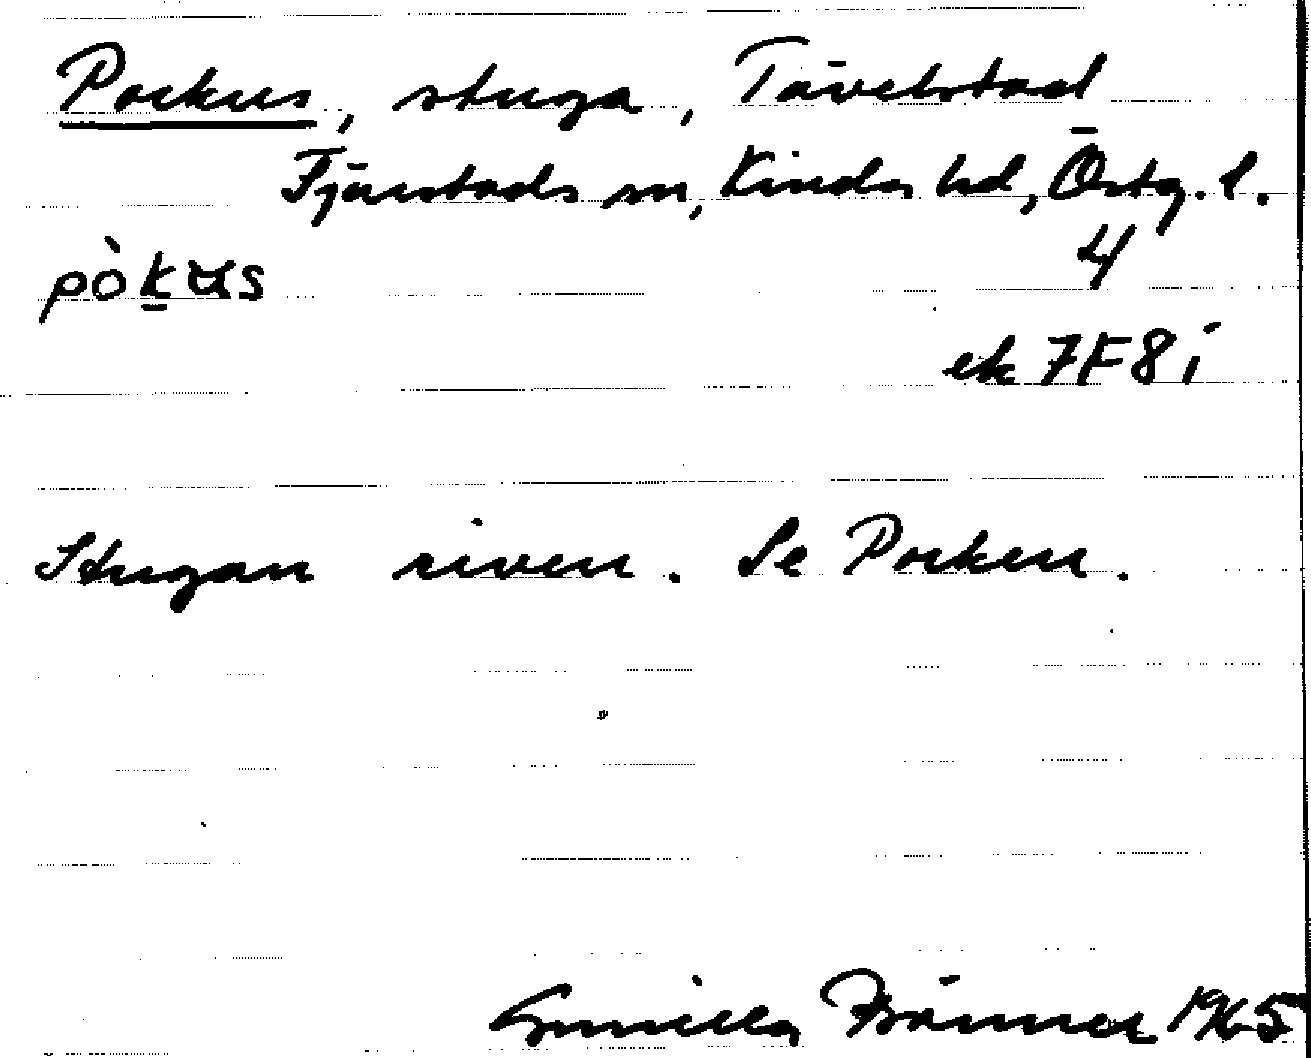 Pockus, stuga, Tävelstad
Fjärstads sn, Kinda hd, Östg. l.
4
pòk̲ʉs
ek 7F8i
Stugan riven. Se Pocken.
Gunilla 1965